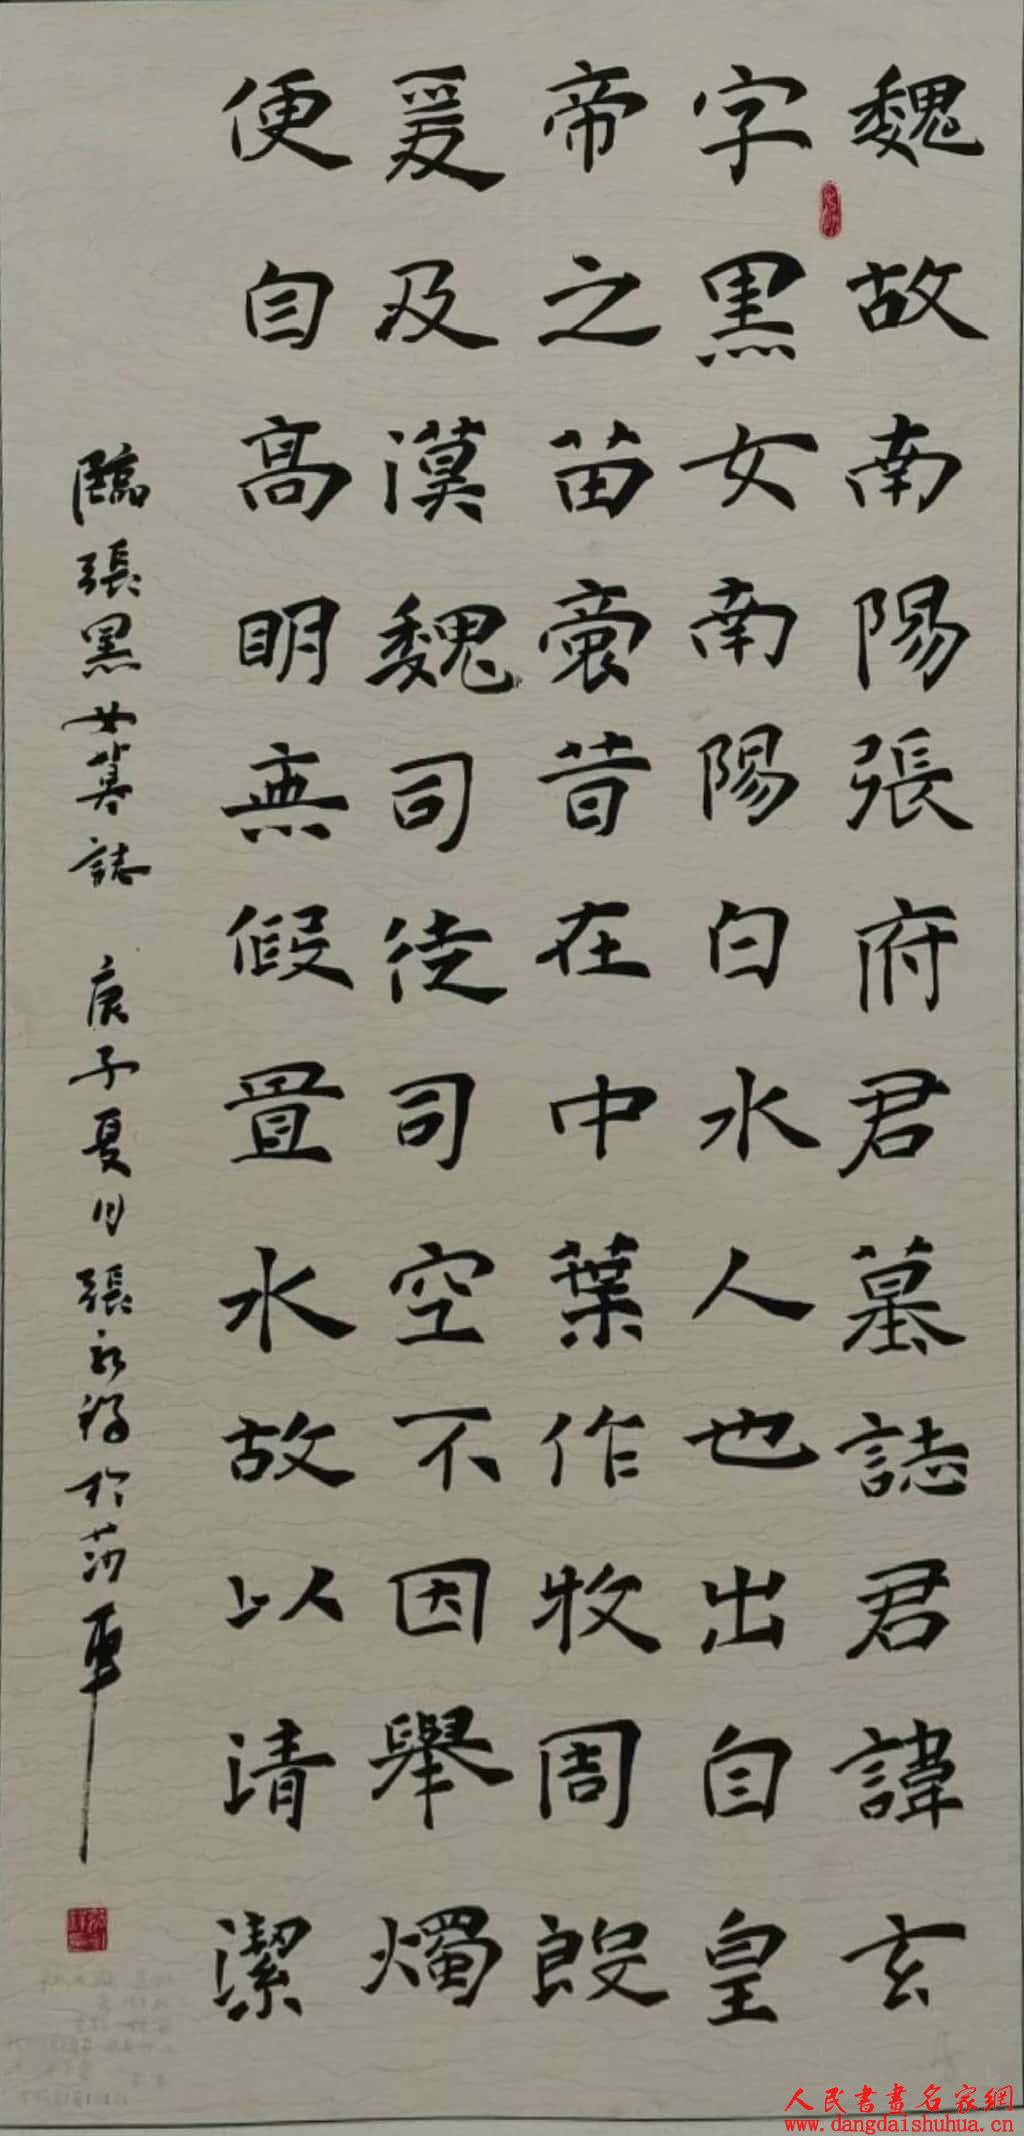 魏故南陽張府君墓誌君諱玄
字黑女南陽白水人也出自皇
帝之苗裔昔在中葉作牧周殷
爰及漢魏司徒司空不因舉燭
便自高明無假置水故以清潔
臨張黑女墓誌 庚子夏月張永福於莎車
人民書畫名家網
www.dangdaishuhua.cn